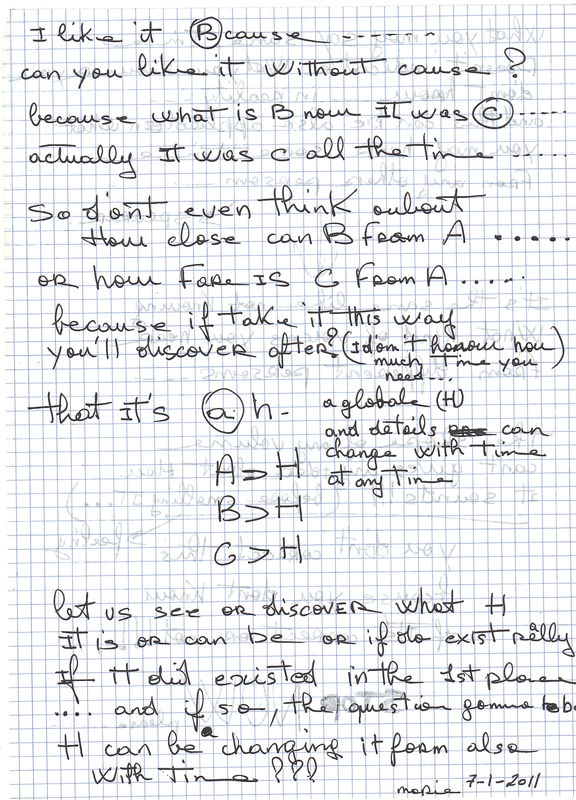 I like it Bcause ------
can you like it without cause ?
because what is B now It was C .....
actually It was C all the time .....
So don't even think oubout
How close can B From A .....
or how Fare IS C From A .....
because if take it this way
you'll discover after? (I don't honow how
much time you
need...)
that it's a h-
a globale (H)
and details can
change with time
at any time
A > H
B > H
C > H
let us see or discover what H
It is or can be or if do exist really
If It did existed in the 1st place
.... and if so, the question gonna to be
H can be changing it form also
with time ???
7-1-2011